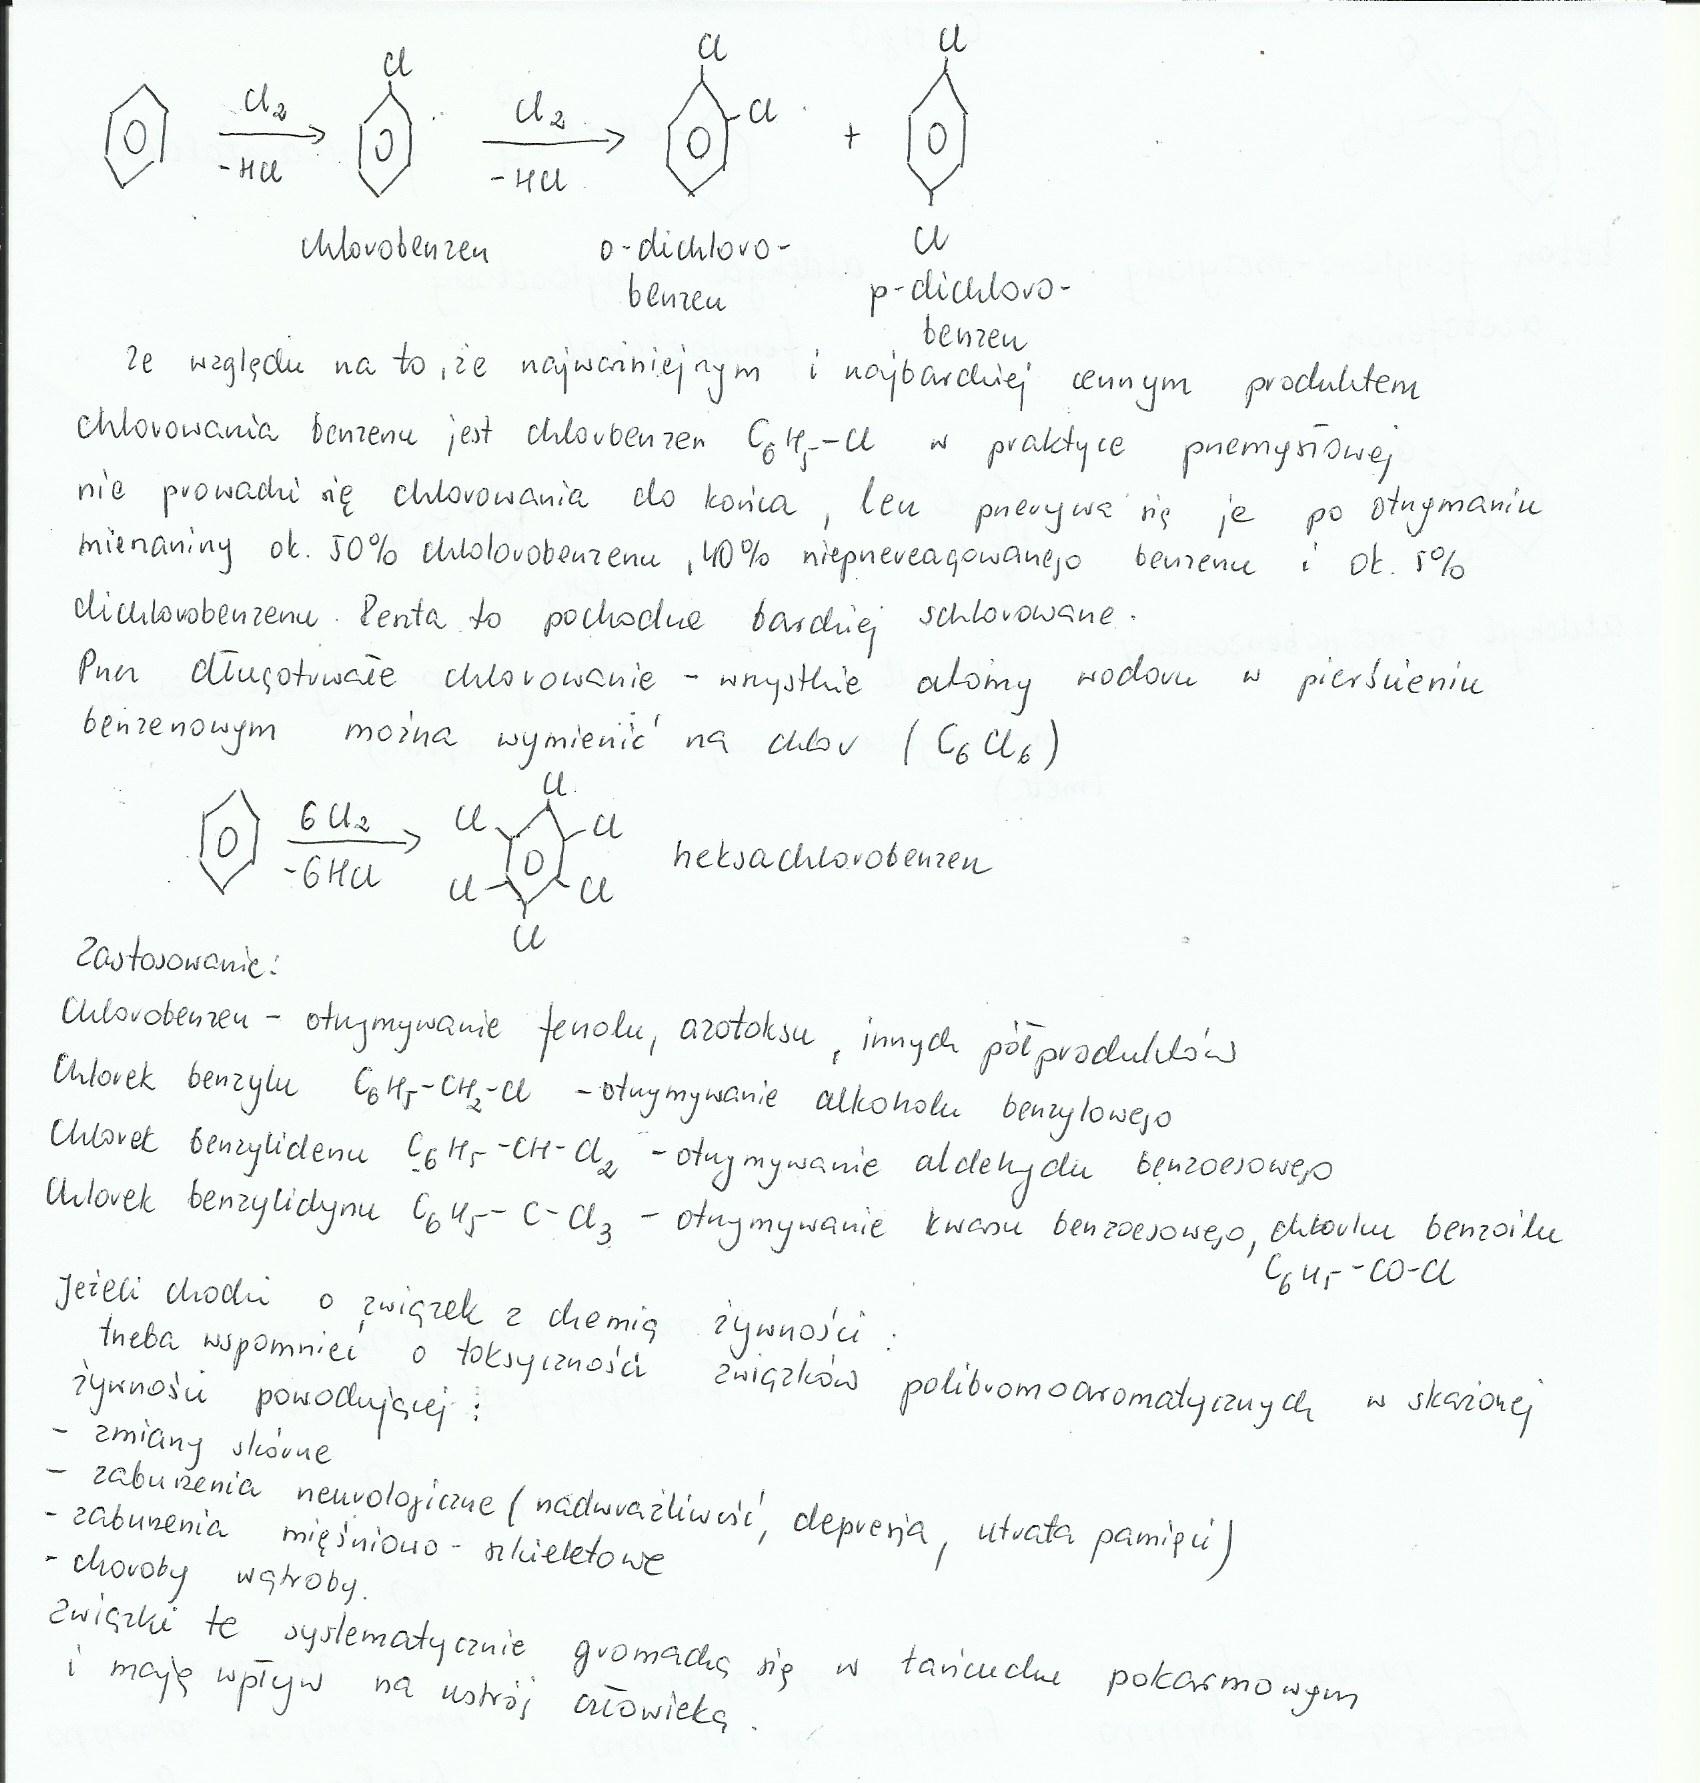 Cl Cl Cl
Cl₂ Cl₂ Cl +
-HCl -HCl
Cl
chlorobenzen o-dichloro-
benzen
p-dichloro-
benzen
Ze względu na to, że najważniejszym i najbardziej cennym produktem
chlorowania benzenu jest chlorbenzen C₆H₅-Cl w praktyce przemysłowej
nie prowadzi się chlorowania do końca, lecz przerywa się je po otrzymaniu
mieszaniny ok. 50% chlolorobenzenu, 40% nieprzereagowanego benzenu i ok. 5%
dichlorobenzenu. Reszta to pochodne bardziej schlorowane.
Przez długotrwałe chlorowanie - wszystkie atomy wodoru w pierścieniu
benzenowym można wymienić na chlor (C₆Cl₆)
Cl
6Cl₂ Cl Cl
-6HCl heksachlorobenzen
Cl Cl
Cl
Zastosowanie:
Chlorobenzen - otrzymywanie fenolu, azotoksu, innych półproduktów
Chlorek benzylu C₆H₅-CH₂-Cl - otrzymywanie alkoholu benzylowego
Chlorek benzylidenu C₆H₅-CH-Cl₂ - otrzymywanie aldehydu benzoesowego
Chlorek benzylidynu C₆H₅-C-Cl₃ - otrzymywanie kwasu benzoesowego, chlorku benzoilu
C₆H₅-CO-Cl
Jeżeli chodzi o związek z chemią żywności:
trzeba wspomnieć o toksyczności związków polibromoaromatycznych w skażonej
żywności powodującej:
- zmiany skórne
- zaburzenia neurologiczne (nadwrażliwość, depresja, utrata pamięci)
- zaburzenia mięśniowo-szkieletowe
- choroby wątroby.
Związki te systematycznie gromadzą się w łańcuchu pokarmowym
i mają wpływ na ustrój człowieka.